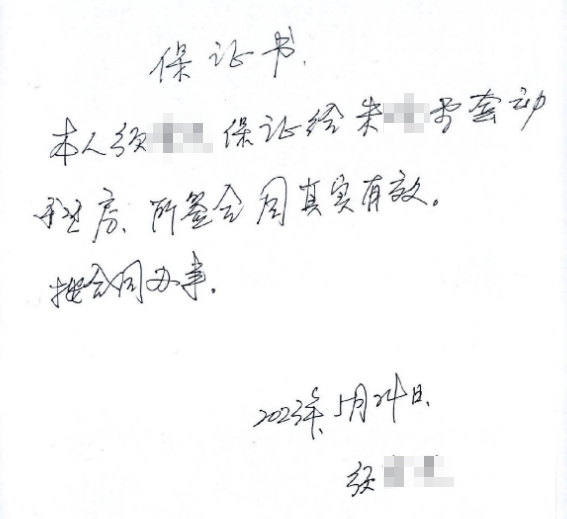 保证书.
本人须 保证给朱 套动
迁房、所签合同真实有效。
按合同办事.
2023年5月24日.
须